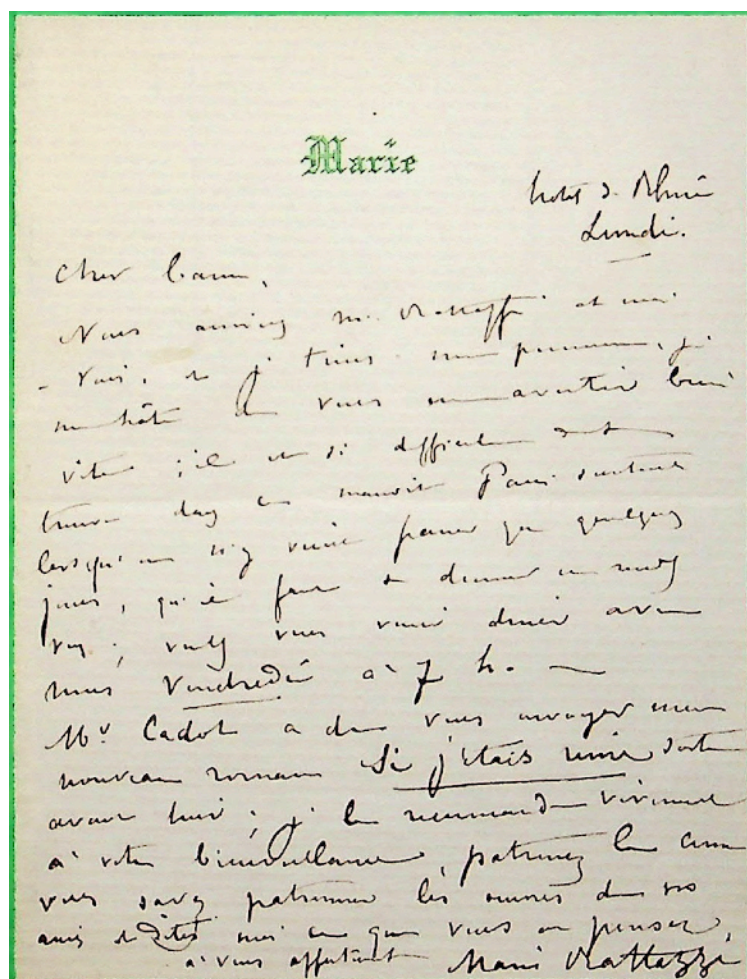 Marie
hotel du Rhin
Lundi.
Cher baron,
Nous arrivons, M. Rattazzi et moi
et je tiens ma promesse, je
me hâte de vous en avertir bien
vite ; il est si difficile de se
trouver dans ce maudit Paris surtout
lorsqu'on n'y vient passer que quelques
jours, qu'il faut se donner un rendez
vous ; voulez vous venir dîner avec
nous Vendredi à 7 h. —
Mr Cadot a dû vous envoyer mon
nouveau roman Si j'étais reine
avant hier ; je le recommande vivement
à votre bienveillance, patronnez le comme
vous savez patronner les œuvres de vos
amis et dites moi ce que vous en pensez,
à vous affectueusement Marie Rattazzi